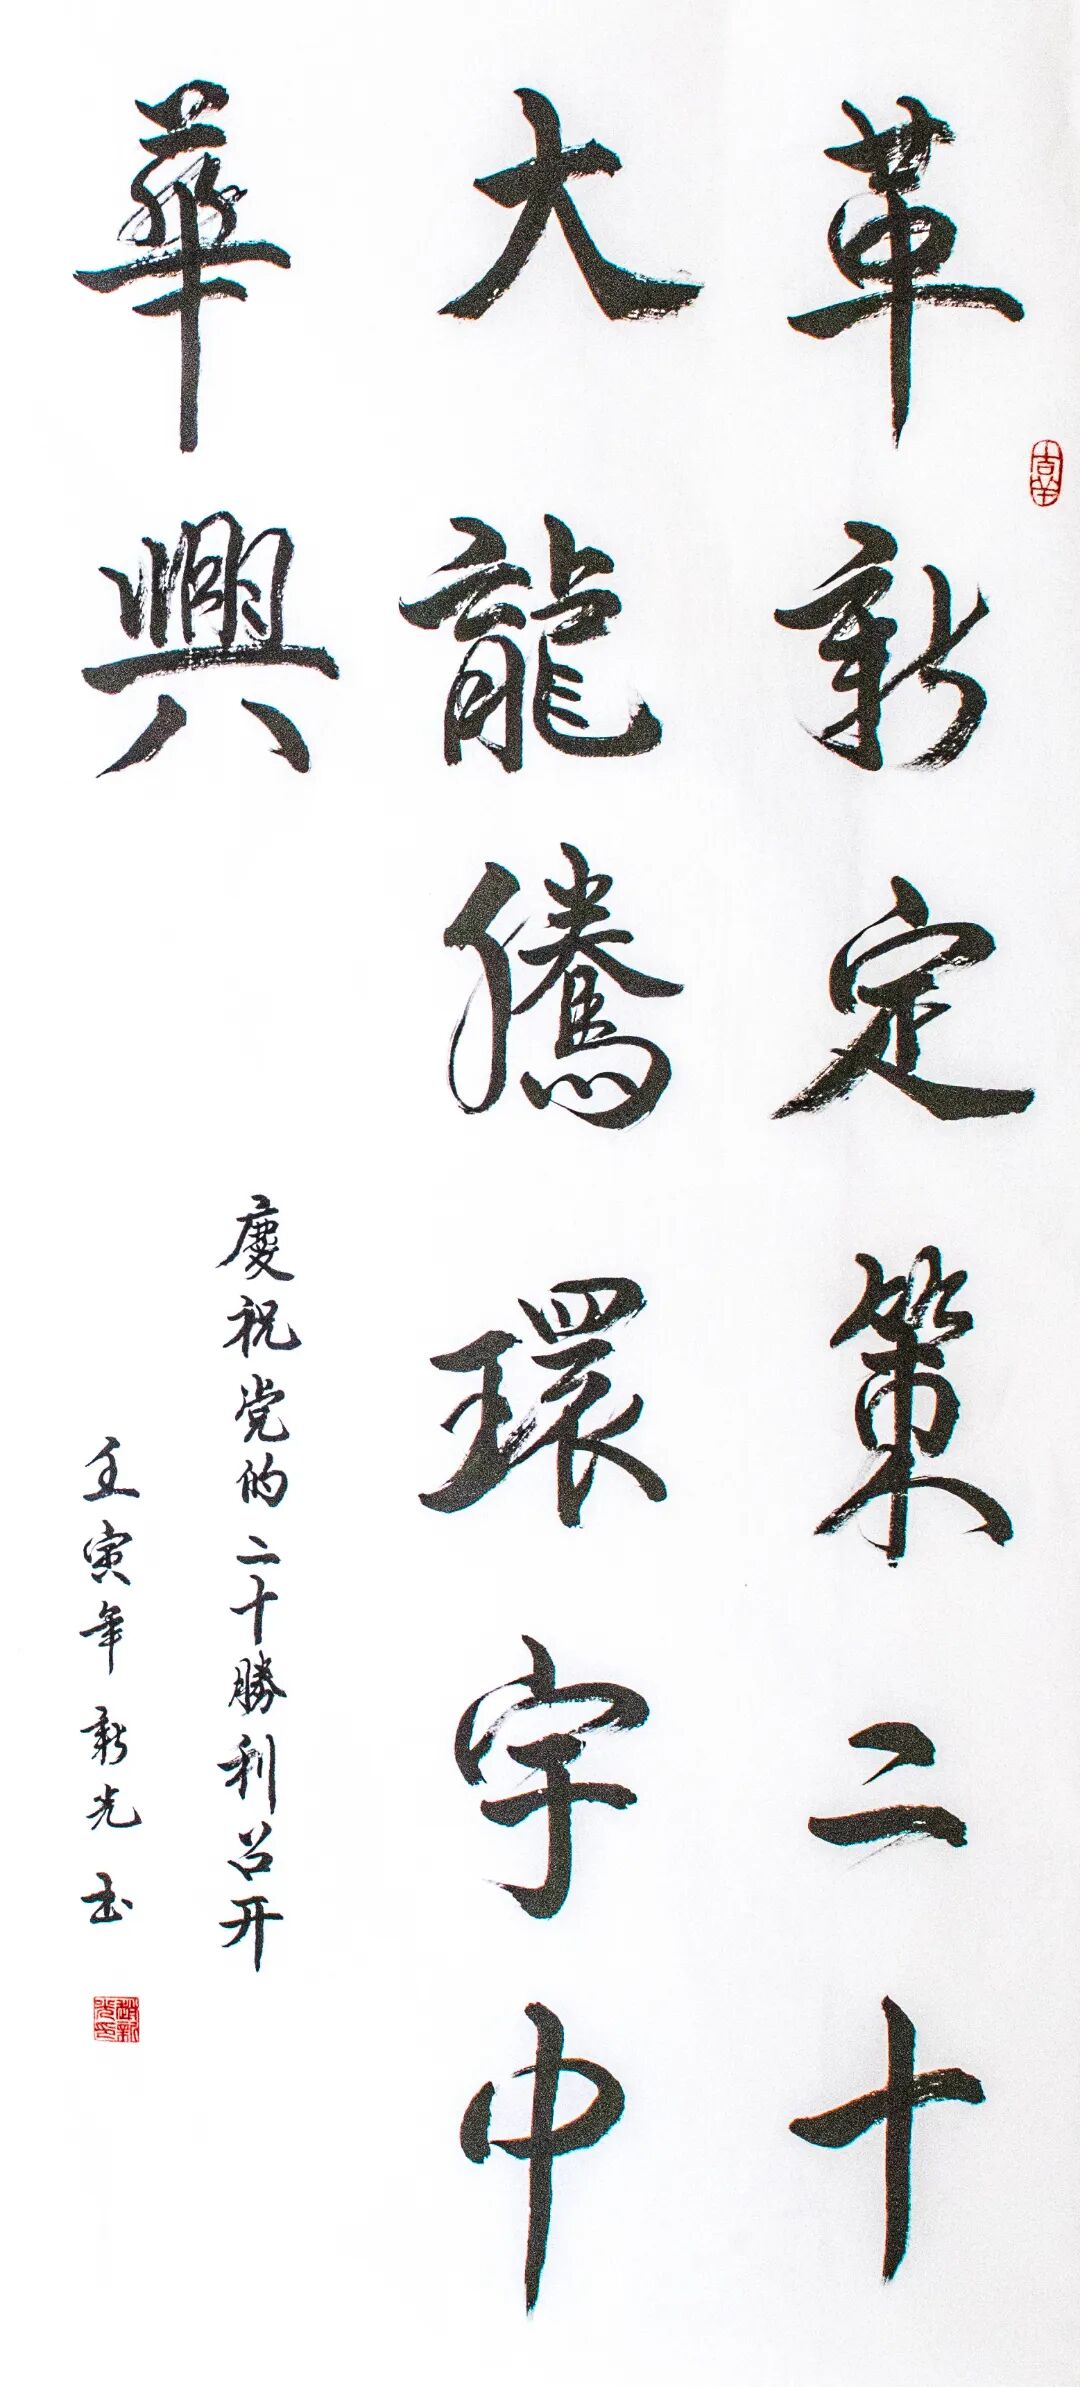 革新定策二十
大龍騰環宇中
華興
慶祝党的二十勝利召开
壬寅年新光书